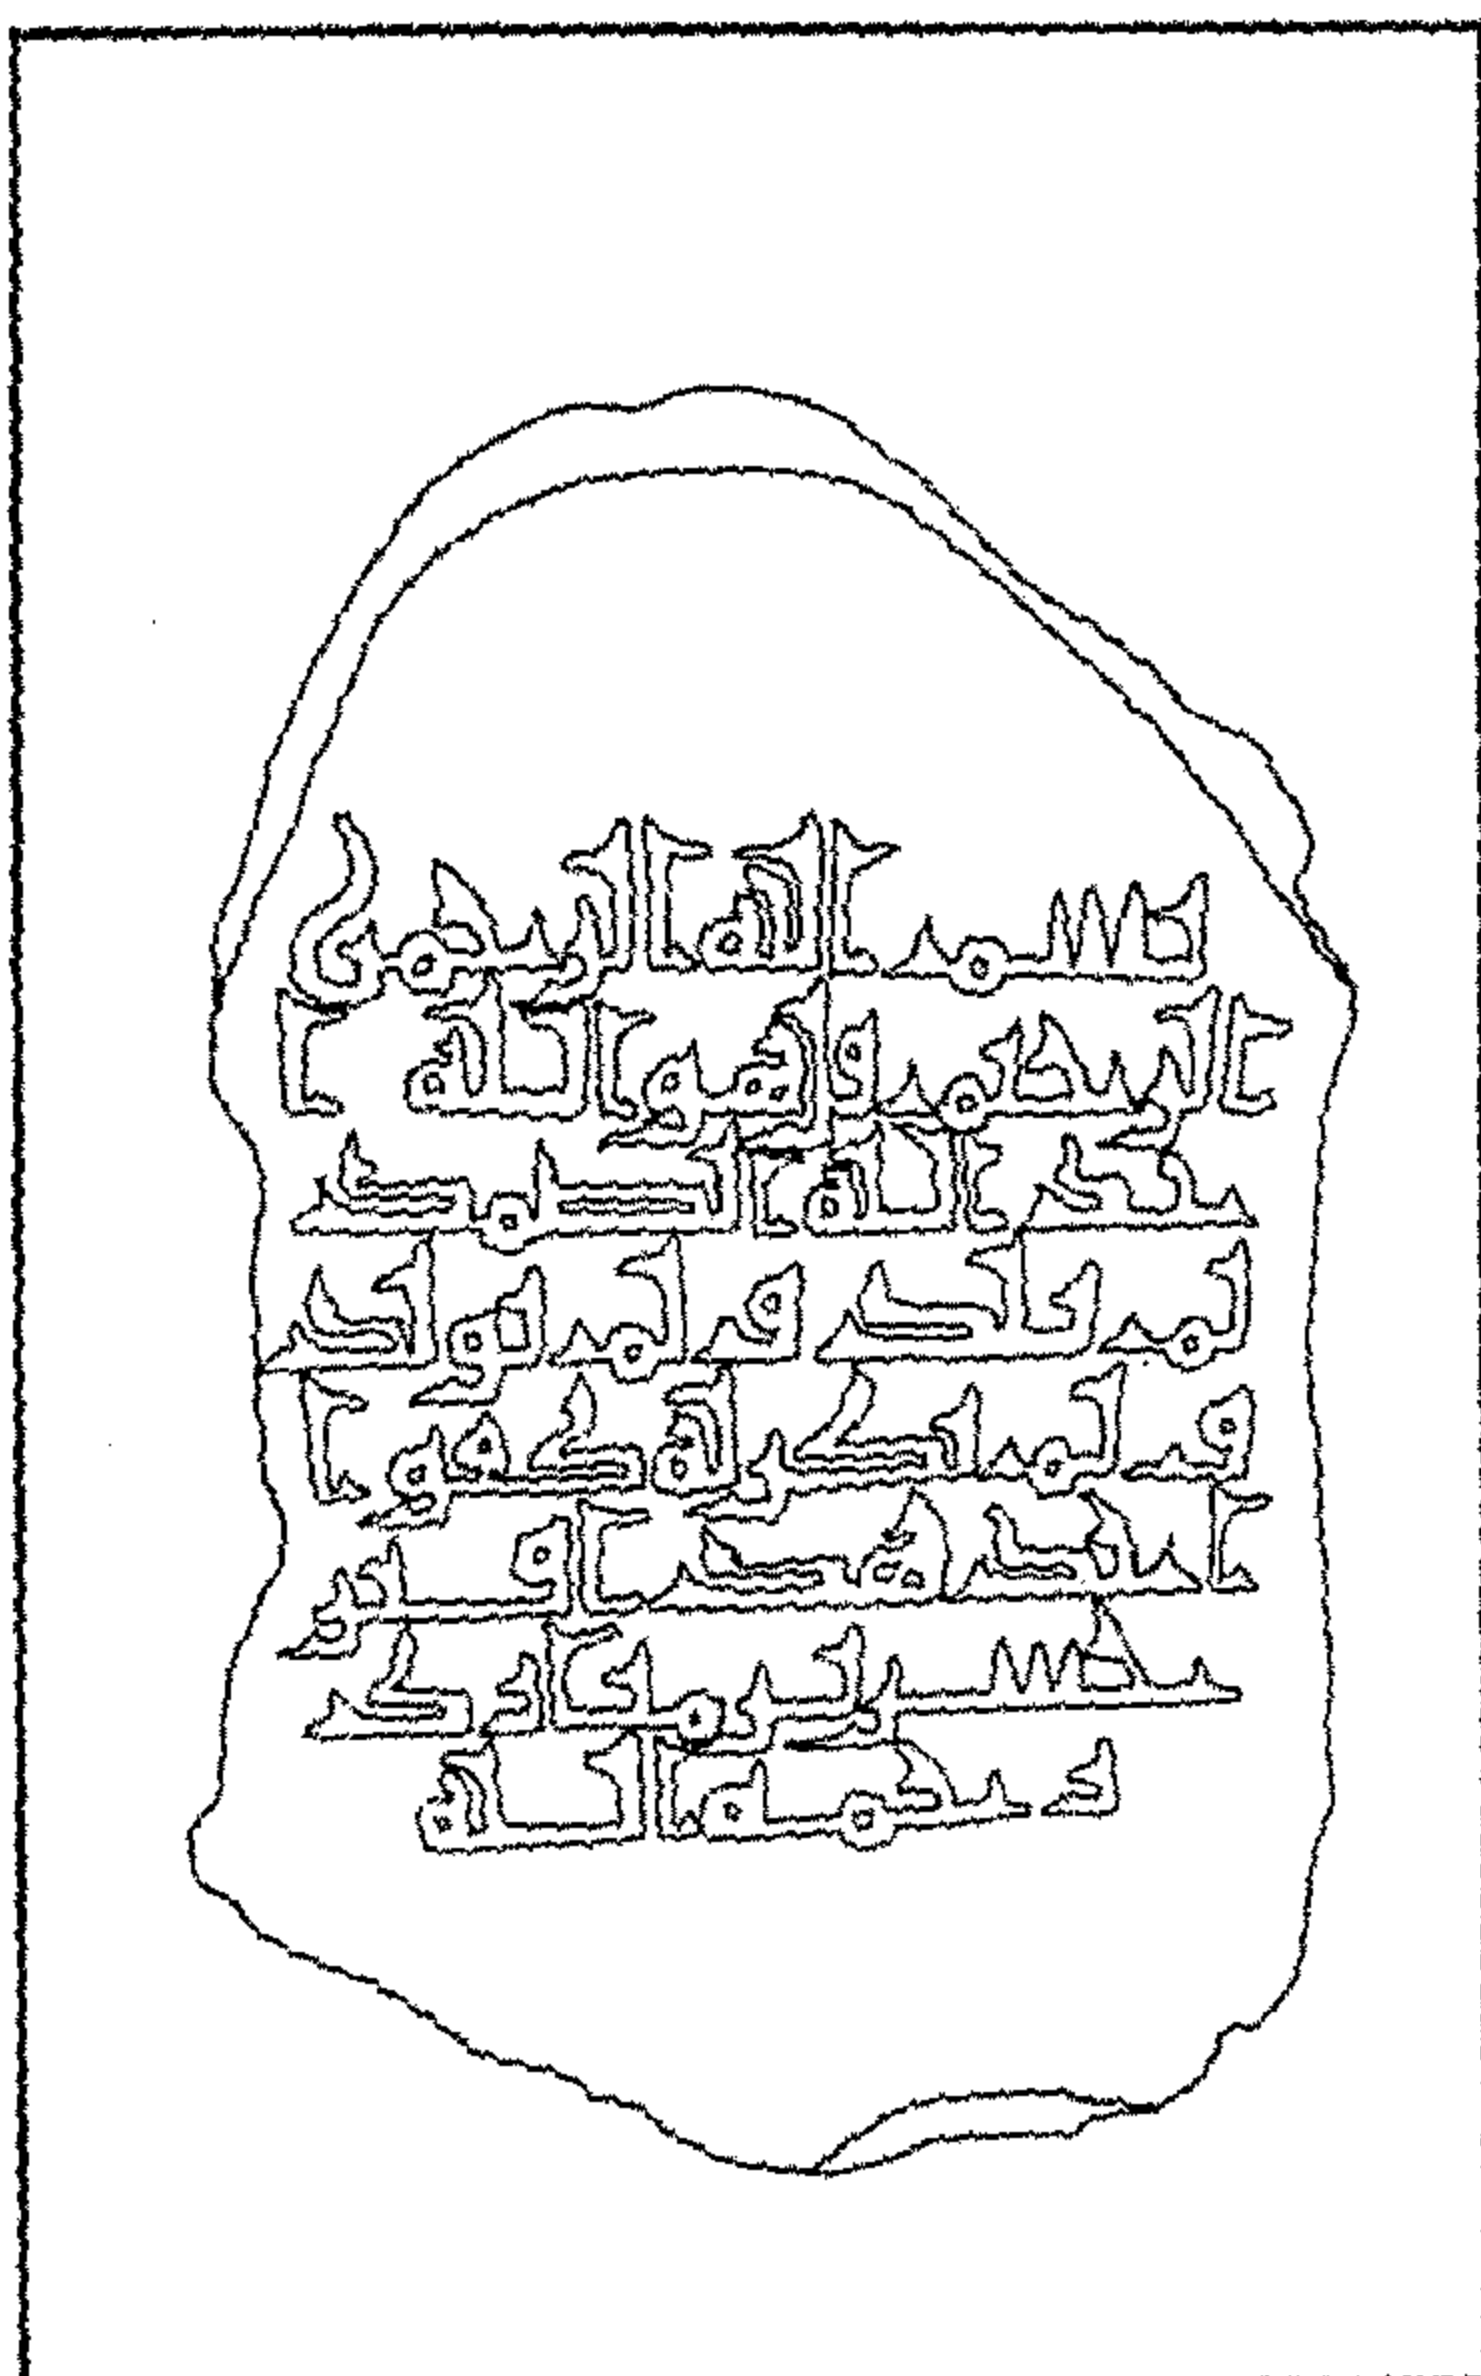 بسم الله الرحمن
الرحيم قل هو الله ا
حد الله الصمد
لم يلد و لم يولد
و لم يكن له كفوا
احد هذا قبر
بن
رحمة الله